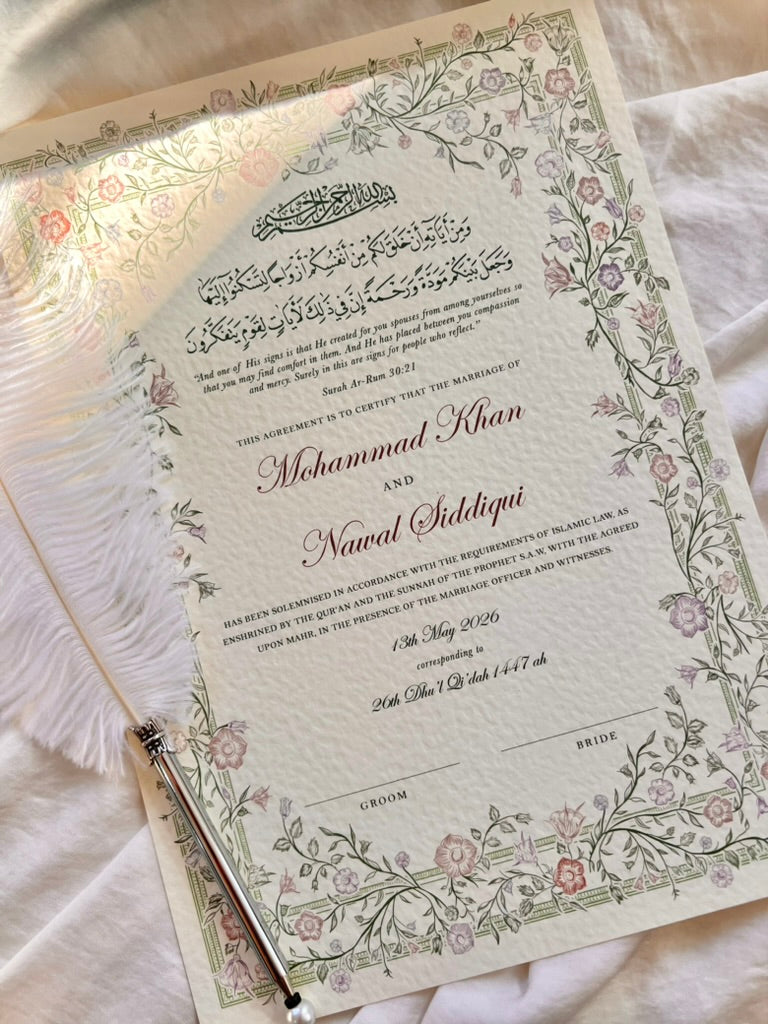 بسم الله الرحمن الرحيم
وَمِنْ آيَاتِهِ أَنْ خَلَقَ لَكُم مِّنْ أَنفُسِكُمْ أَزْوَاجًا لِّتَسْكُنُوا إِلَيْهَا
وَجَعَلَ بَيْنَكُم مَّوَدَّةً وَرَحْمَةً إِنَّ فِي ذَٰلِكَ لَآيَاتٍ لِّقَوْمٍ يَتَفَكَّرُونَ
"And one of His signs is that He created for you spouses from among yourselves so
that you may find comfort in them. And He has placed between you compassion
and mercy. Surely in this are signs for people who reflect."
Surah Ar-Rum 30:21
THIS AGREEMENT IS TO CERTIFY THAT THE MARRIAGE OF
Mohammad Khan
AND
Nawal Siddiqui
HAS BEEN SOLEMNISED IN ACCORDANCE WITH THE REQUIREMENTS OF ISLAMIC LAW, AS
ENSHRINED BY THE QUR'AN AND THE SUNNAH OF THE PROPHET S.A.W. WITH THE AGREED
UPON MAHR, IN THE PRESENCE OF THE MARRIAGE OFFICER AND WITNESSES.
13th May 2026
corresponding to
26th Dhu'l Qi'dah 1447 ah
GROOM
BRIDE